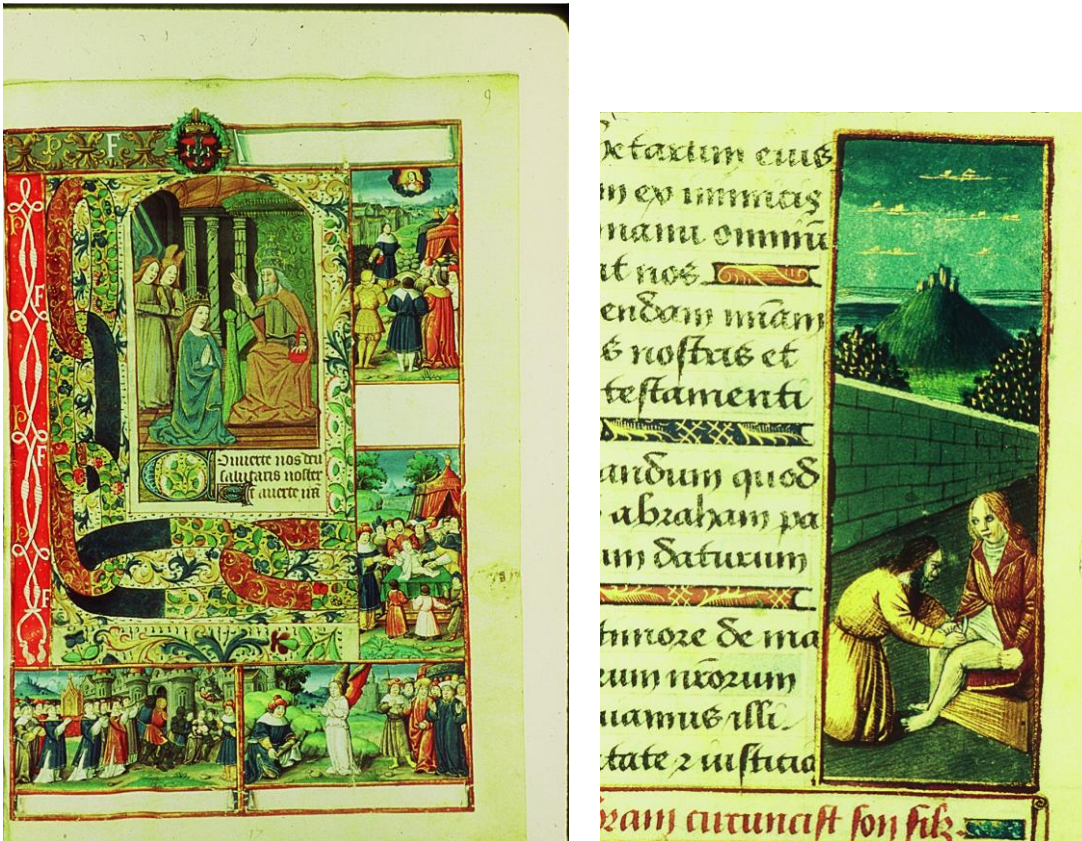 9
P F
F
F
F
Converte nos deus
salutaris noster
Et averte
etarium eius
m ex inimicis
manu omniū
nt nos
endam miam
s nostris et
testamenti
andum quod
abraham pa
um daturum
timore de ma
rum nrorum
uamus illi
tate z iusticia
bram circuncist son filz